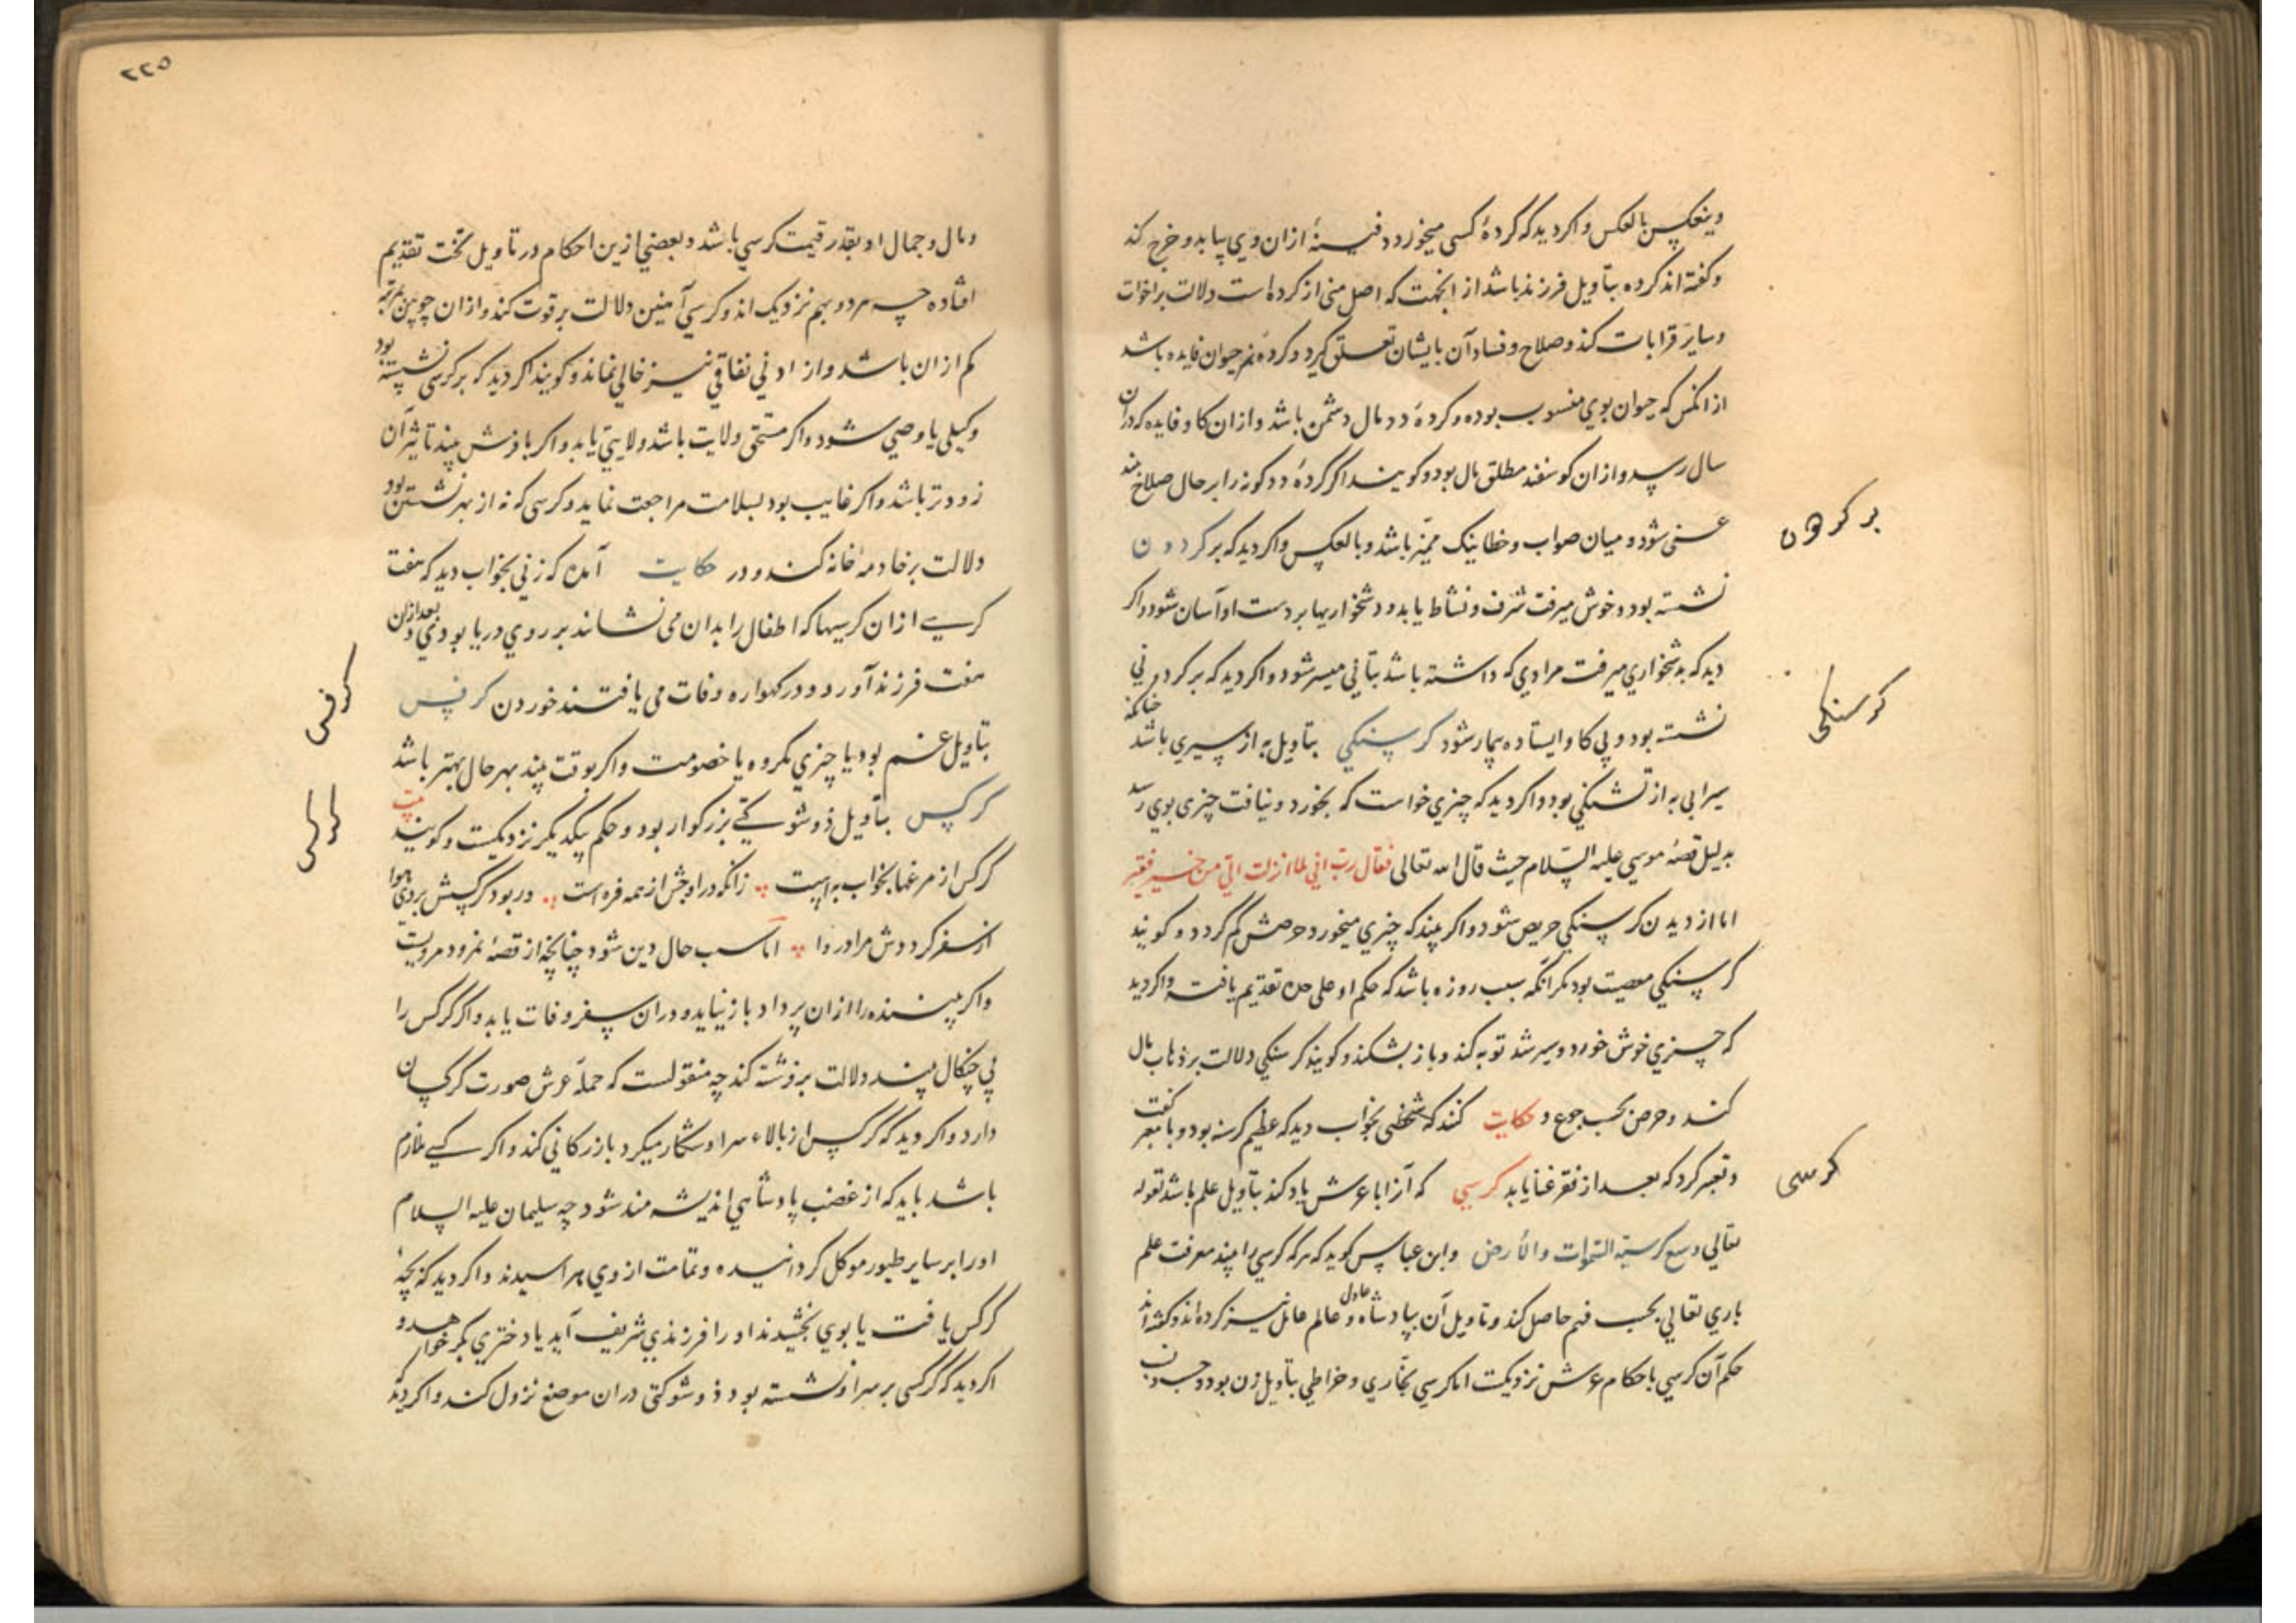 وینعکس بالعکس و اکر دید که کردهٔ کسی میخورد دفینهٔ ازان وی بیابد و خرج کند
و کفته اند کرده بتاویل فرزند باشد از انجهت که اصل منی از کرده است دلالت بر اخوات
و سایر قرابات کند و صلاح و فساد آن بایشان تعلق کیرد و کردهٔ هر حیوان فایده باشد
از انکس که حیوان بوی منسوب بوده و کردهٔ دد مال دشمن باشد و ازان کاو فایده که دران
سال رسد و ازان کوسفند مطلق مال بود و کویند اکر کردهٔ دد کونه را بر حال صلاح بیند
غنی شود و میان صواب و خطا نیک ممیّز باشد و بالعکس و اکر دید که بر کردون
بر کردون
نشسته بود و خوش میرفت شرف و نشاط یابد و دشخواریها بر دست او آسان شود و اکر
دید که بدشخواری میرفت مرادی که داشته باشد بتانی میسر شود و اکر دید که بر کردونی
نشسته بود و بی کاو ایستاده بیمار شود کرسنکی بتاویل به از سیری باشد چنانکه
کرسنکی
سیرابی به از تشنکی بود و اکر دید که چیزی خواست که بخورد و نیافت چیزی بوی رسد
بدلیل قصهٔ موسی علیه السّلام حیث قال الله تعالی فقال ربّ انی لما انزلت الیّ من خیر فقیر
اما از دیدن کرسنکی حریص شود و اکر بیند که چیزی میخورد حرصش کم کردد و کویند
کرسنکی معصیت بود مکر آنکه سبب روزه باشد که حکم او علی حده تقدیم یافته و اکر دید
که چیزی خوش خورد و سیر شد توبه کند و باز بشکند و کویند کرسنکی دلالت بر ذهاب مال
کند و حرص بحسب جوع و حکایت کنند که شخصی بخواب دید که عظیم کرسنه بود و با معبر کفت
و تعبیر کرد که بعد از فقر غنا یابد کرسی که آنرا با عرش یاد کند بتاویل علم باشد لقوله
کرسی
تعالی وسع کرسیّه السّموات والأرض و ابن عباس کوید که هر که کرسی را بیند معرفت علم
باری تعالی بحسب فهم حاصل کند و تاویل آن بپادشاه عادل و عالم عامل نیز کرده اند و کفته اند
حکم آن کرسی باحکام عرش نزدیکست اما کرسی نجّاری و خراطی بتاویل زن بود و حسن
٢٢٥
و مال و جمال او بقدر قیمت کرسی باشد و بعضی ازین احکام در تاویل تخت تقدیم
افتاده چه هر دو بهم نزدیک اند و کرسی آهنین دلالت بر قوت کند و ازان چوبین مرتبه
کم ازان باشد و از ادنی نفاقی نیز خالی نماند و کویند اکر دید که بر کرسی نشسته بود
وکیلی یا وصی شود و اکر مستحق ولایت باشد ولایتی یابد و اکر با فرش بیند تاثیر آن
زودتر باشد و اکر غایب بود بسلامت مراجعت نماید و کرسی که نه از بهر نشستن بود
دلالت بر خادمهٔ خانه کند و در حکایت آمده که زنی بخواب دید که هفت
کرسی ازان کرسیها که اطفال را بدان می نشانند بر روی دریا بودی و بعد ازان
هفت فرزند آورد و در کهواره وفات می یافتند خوردن کرفس
کرفس
بتاویل غم بود یا چیزی مکروه یا خصومت و اکر بوقت بیند بهر حال بهتر باشد
کرکس بتاویل ذو شوکتی بزرکوار بود و حکم بیکدیکر نزدیکست و کویند بیت
کرکس
کرکس از مرغها بخواب به است زانکه در اوجش از همه فره است ور بود کرکسش بروی هوا
از سفر کرددش مراد روا اما سبب حال دین شود چنانچه از قصهٔ نمرود مرویست
و اکر بیننده را ازان پرداد باز نیاید و دران سفر وفات یابد و اکر کرکس را
بی چنکال بیند دلالت بر فرشته کند چه منقولست که حملهٔ عرش صورت کرکسان
دارد و اکر دید که کرکس از بالاء سر او شکار میکرد بازرکانی کند و اکر کسی ملازم
باشد باید که از غضب پادشاهی اندیشه مند شود چه سلیمان علیه السلام
او را بر سایر طیور موکل کردانیده و تمامت از وی هراسیدند و اکر دید که بچهٔ
کرکس یافت یا بوی بخشیدند او را فرزندی شریف آید یا دختری بکر خواهد و
اکر دید که کرکسی بر سر او نشسته بود ذو شوکتی دران موضع نزول کند و اکر دید که